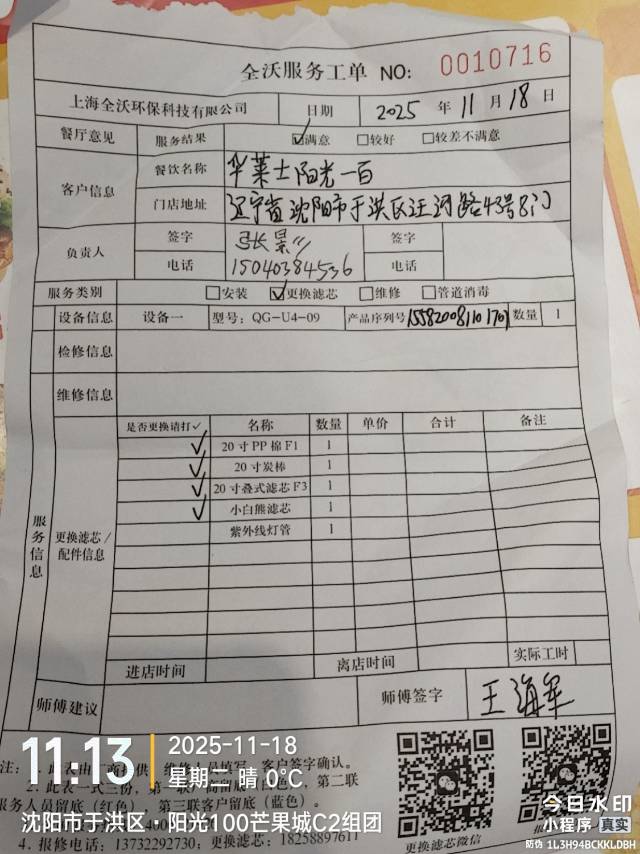 全沃服务工单 NO: 0010716
上海全沃环保科技有限公司 日期 2025 年 11 月 18 日
餐厅意见 服务结果 ☑满意 □较好 □较差不满意
客户信息 餐饮名称 华莱士阳光一百
门店地址 辽宁省沈阳市于洪区汪河路43号8门
负责人 签字 张景 签字
电话 15040384536 电话
服务类别 □安装 ☑更换滤芯 □维修 □管道消毒
设备信息 设备一 型号: QG-U4-09 产品序列号 数量 1
检修信息
维修信息
服务信息
更换滤芯/配件信息
是否更换请打✓ 名称 数量 单价 合计 备注
✓ 20寸PP棉F1 1
✓ 20寸炭棒 1
✓ 20寸叠式滤芯F3 1
✓ 小白熊滤芯 1
紫外线灯管 1
进店时间 离店时间 实际工时
师傅建议 师傅签字 王海军
11:13 2025-11-18
星期二 晴 0°C
沈阳市于洪区·阳光100芒果城C2组团
注: 1. 此表由 维修人员填写,客户签字确认。
2. 此表一式三份,第一联 第二联
服务人员留底(红色),第三联客户留底(蓝色)。
4. 报修电话: 13732292730; 18258897611
更换滤芯微信
今日水印
小程序 真实
防伪 1L3H94BCKKLDBH